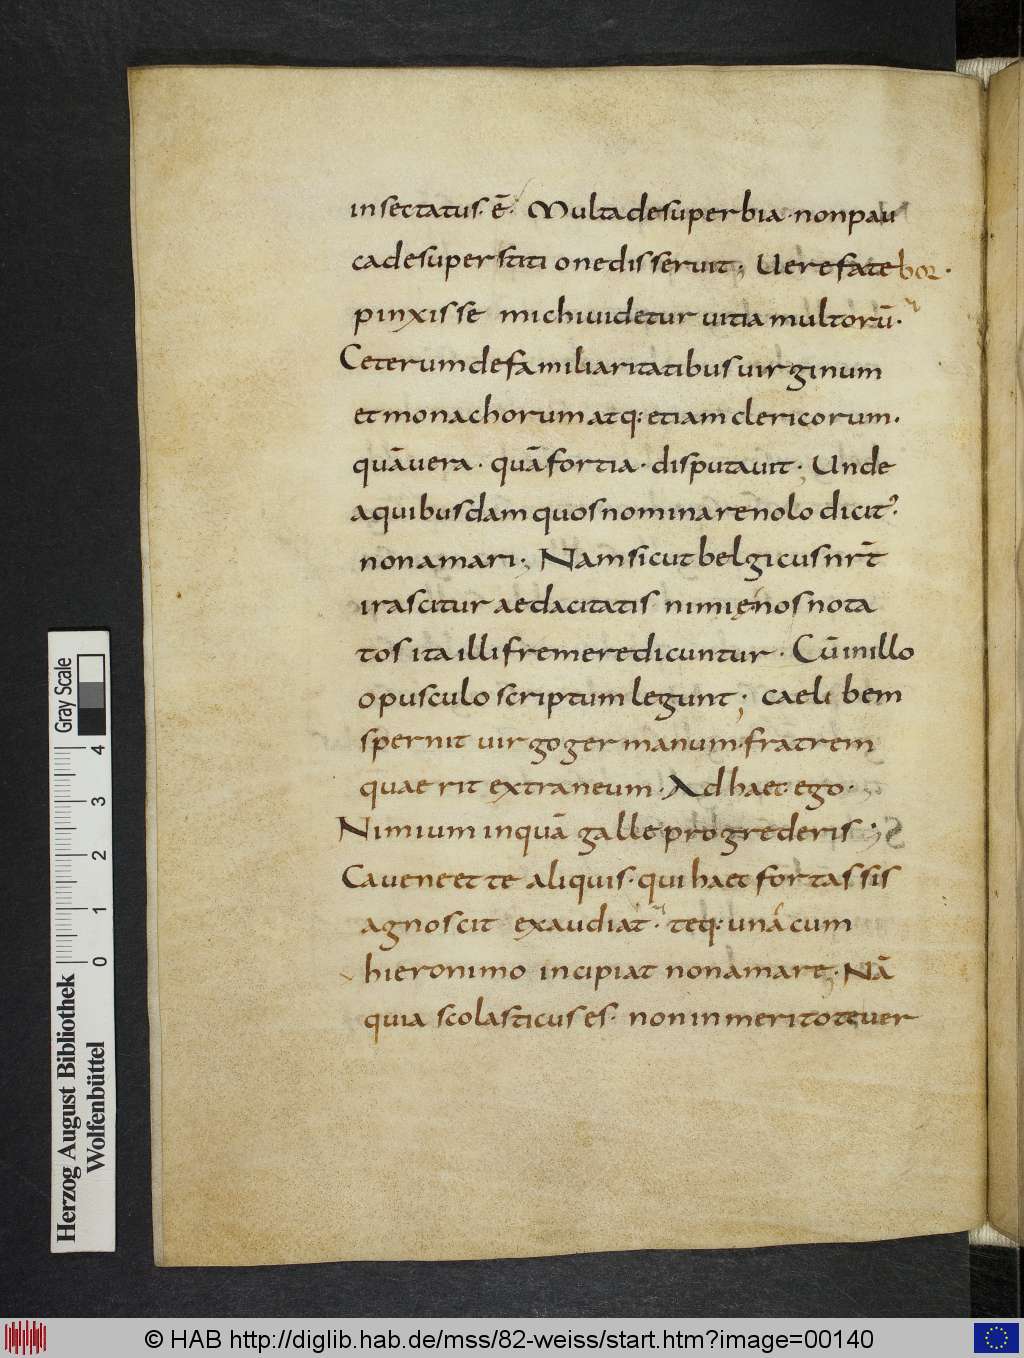 insectatus· ē· Multa de superbia· non pau
ca de superstitione disseruit; Uere fatebor·
pinxisse michi uidetur uitia multorū·
Ceterum de familiaritatibus uirginum
et monachorum atq: etiam clericorum·
quā uera· quā fortia· disputauit; Unde
a quibusdam quos nominare nolo dicit᾽·
non amari; Nam sicut belgicus nr̄t
irascitur aedacitatis nimię nos nota
tos ita illi fremere dicuntur· Cū in illo
opusculo scriptum legunt; caelibem
spernit uirgo germanum· fratrem
quaerit extraneum· Ad haec ego·
Nimium inquā galle progrederis;
Caue ne et te aliquis· qui haec fortassis
agnoscit exaudiat· teq: una cum
hieronimo incipiat non amare; Nā
quia scolasticus es· non inmerito te uer
Herzog August Bibliothek
Wolfenbüttel
0 1 2 3 4
Gray Scale
© HAB http://diglib.hab.de/mss/82-weiss/start.htm?image=00140